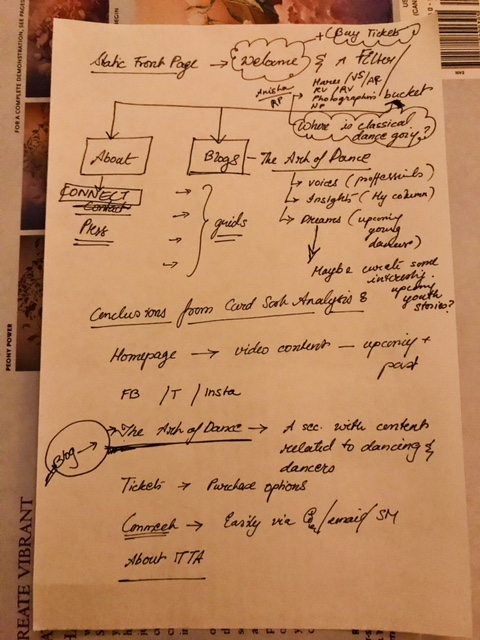 + Buy Tickets
Static Front Page → Welcome & A Filter/
bucket
Where is classical
dance going?
About
CONNECT
Contact
Press
Blogs - The Art of Dance
voices (professionals)
Insights (My column)
Dreams (upcoming
young
dancers)
grids
Maybe curate some
upcoming
youth
stories?
Conclusions from Card Sort Analysis :
Homepage → video content — upcoming +
past
FB / T / Insta
Blog → The Art of Dance → A sec. with content
related to dancing &
dancers
Tickets → Purchase options
Connect → Easily via /email/ SM
About TTA
FOR A COMPLETE DEMONSTRATION, SEE PAGES
PEONY POWER
CREATE VIBRANT